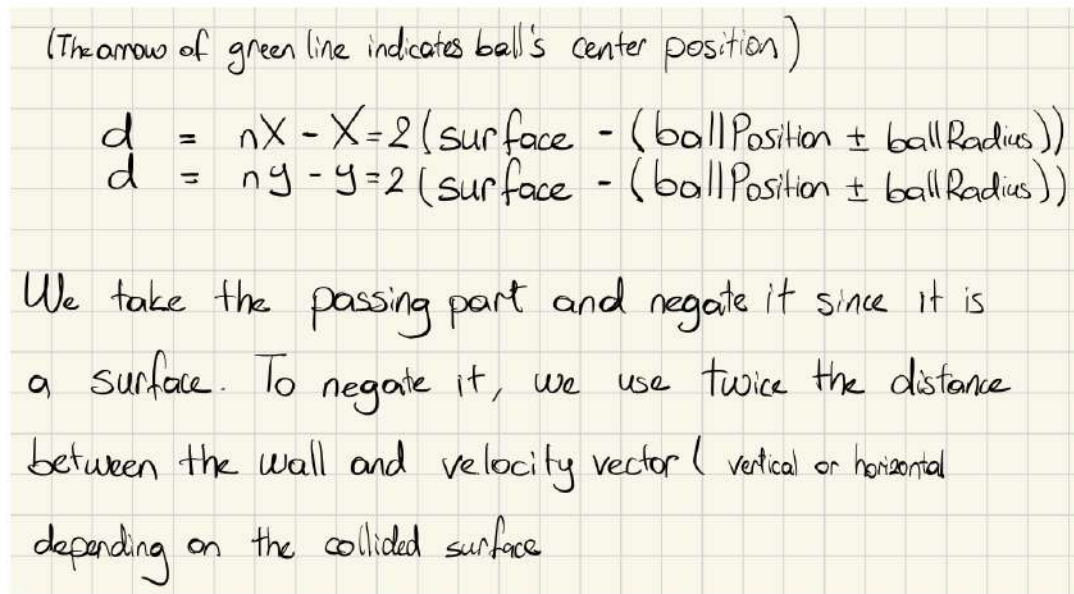 (The arrow of green line indicates ball's center position)
d = nX - X = 2(surface - (ballPosition ± ballRadius))
d = ny - y = 2(surface - (ballPosition ± ballRadius))
We take the passing part and negate it since it is
a surface. To negate it, we use twice the distance
between the wall and velocity vector ( vertical or horizontal
depending on the collided surface